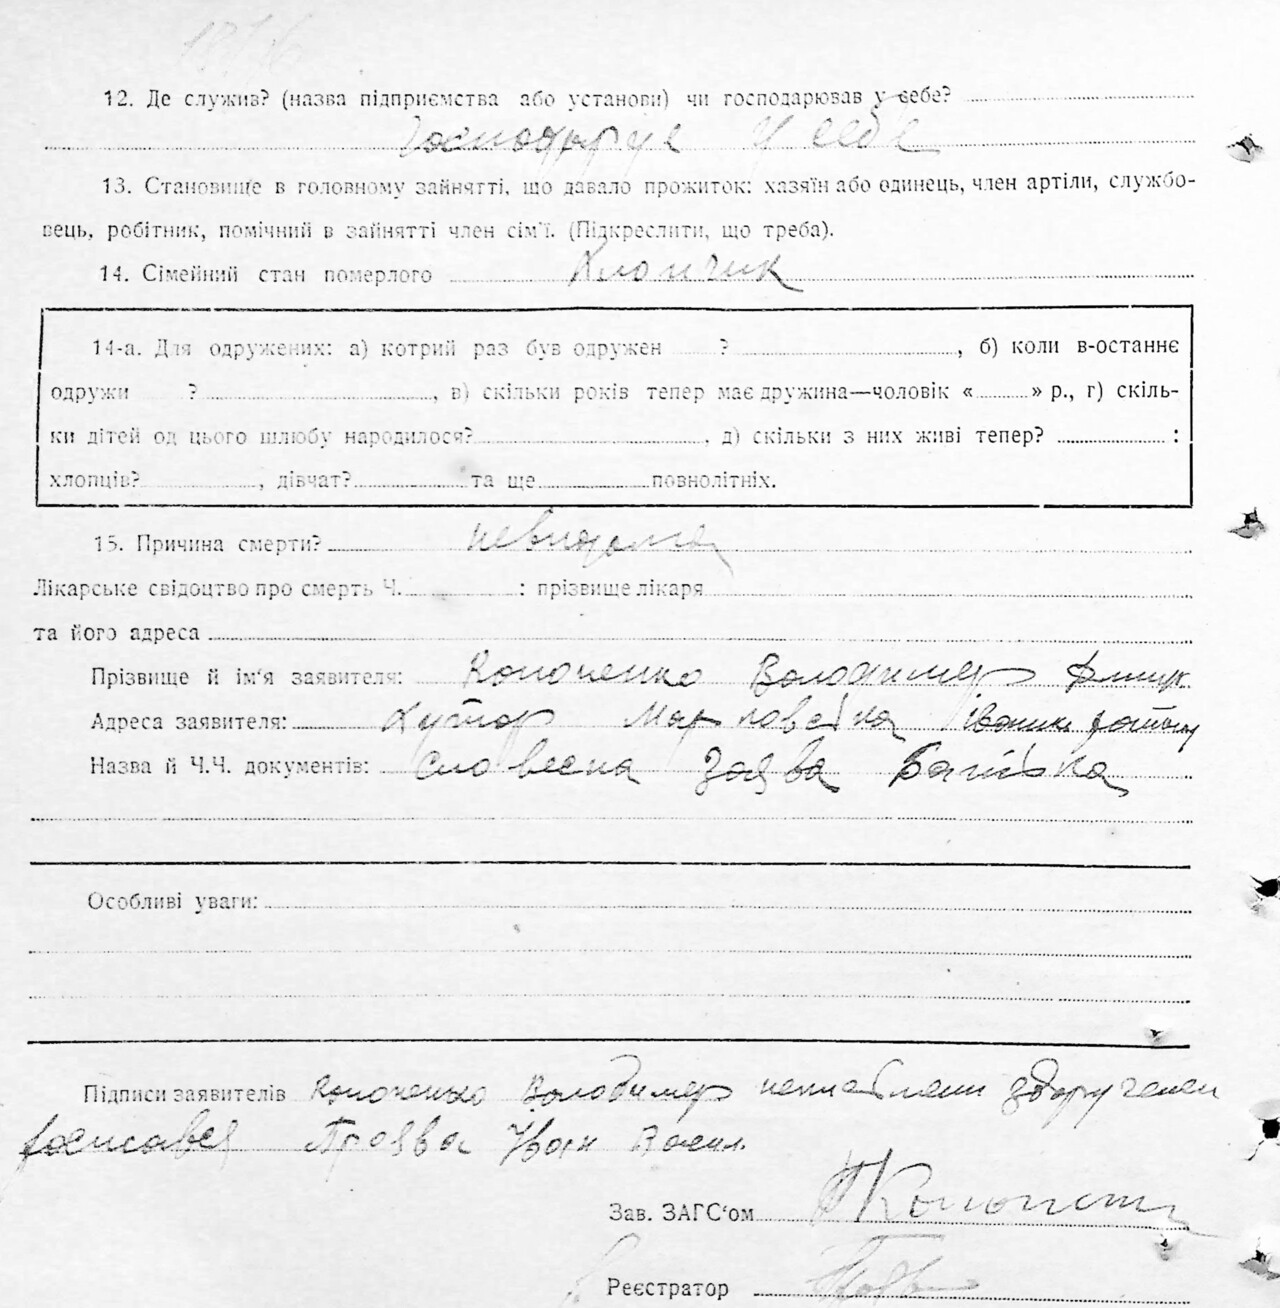 12. Де служив? (назва підприємства або установи) чи господарював у себе?
Господарує у себе
13. Становище в головному зайнятті, що давало прожиток: хазяїн або одинець, член артіли, службо-
вець, робітник, помічний в зайнятті член сім'ї. (Підкреслити, що треба).
14. Сімейний стан померлого Хлопчик
14-а. Для одружених: а) котрий раз був одружен ?, б) коли в-останнє
одружи ?, в) скільки років тепер має дружина—чоловік « » р., г) скіль-
ки дітей од цього шлюбу народилося?, д) скільки з них живі тепер? :
хлопців?, дівчат? та ще повнолітніх.
15. Причина смерти? невидома
Лікарське свідоцтво про смерть Ч. : прізвище лікаря
та його адреса
Прізвище й ім'я заявителя: Володимер
Адреса заявителя: Хутор
Назва й Ч.Ч. документів: словесна заява Батька
Особливі уваги:
Підписи заявителів Володимер
росписався Іван Васил.
Зав. ЗАГС'ом
Реєстратор